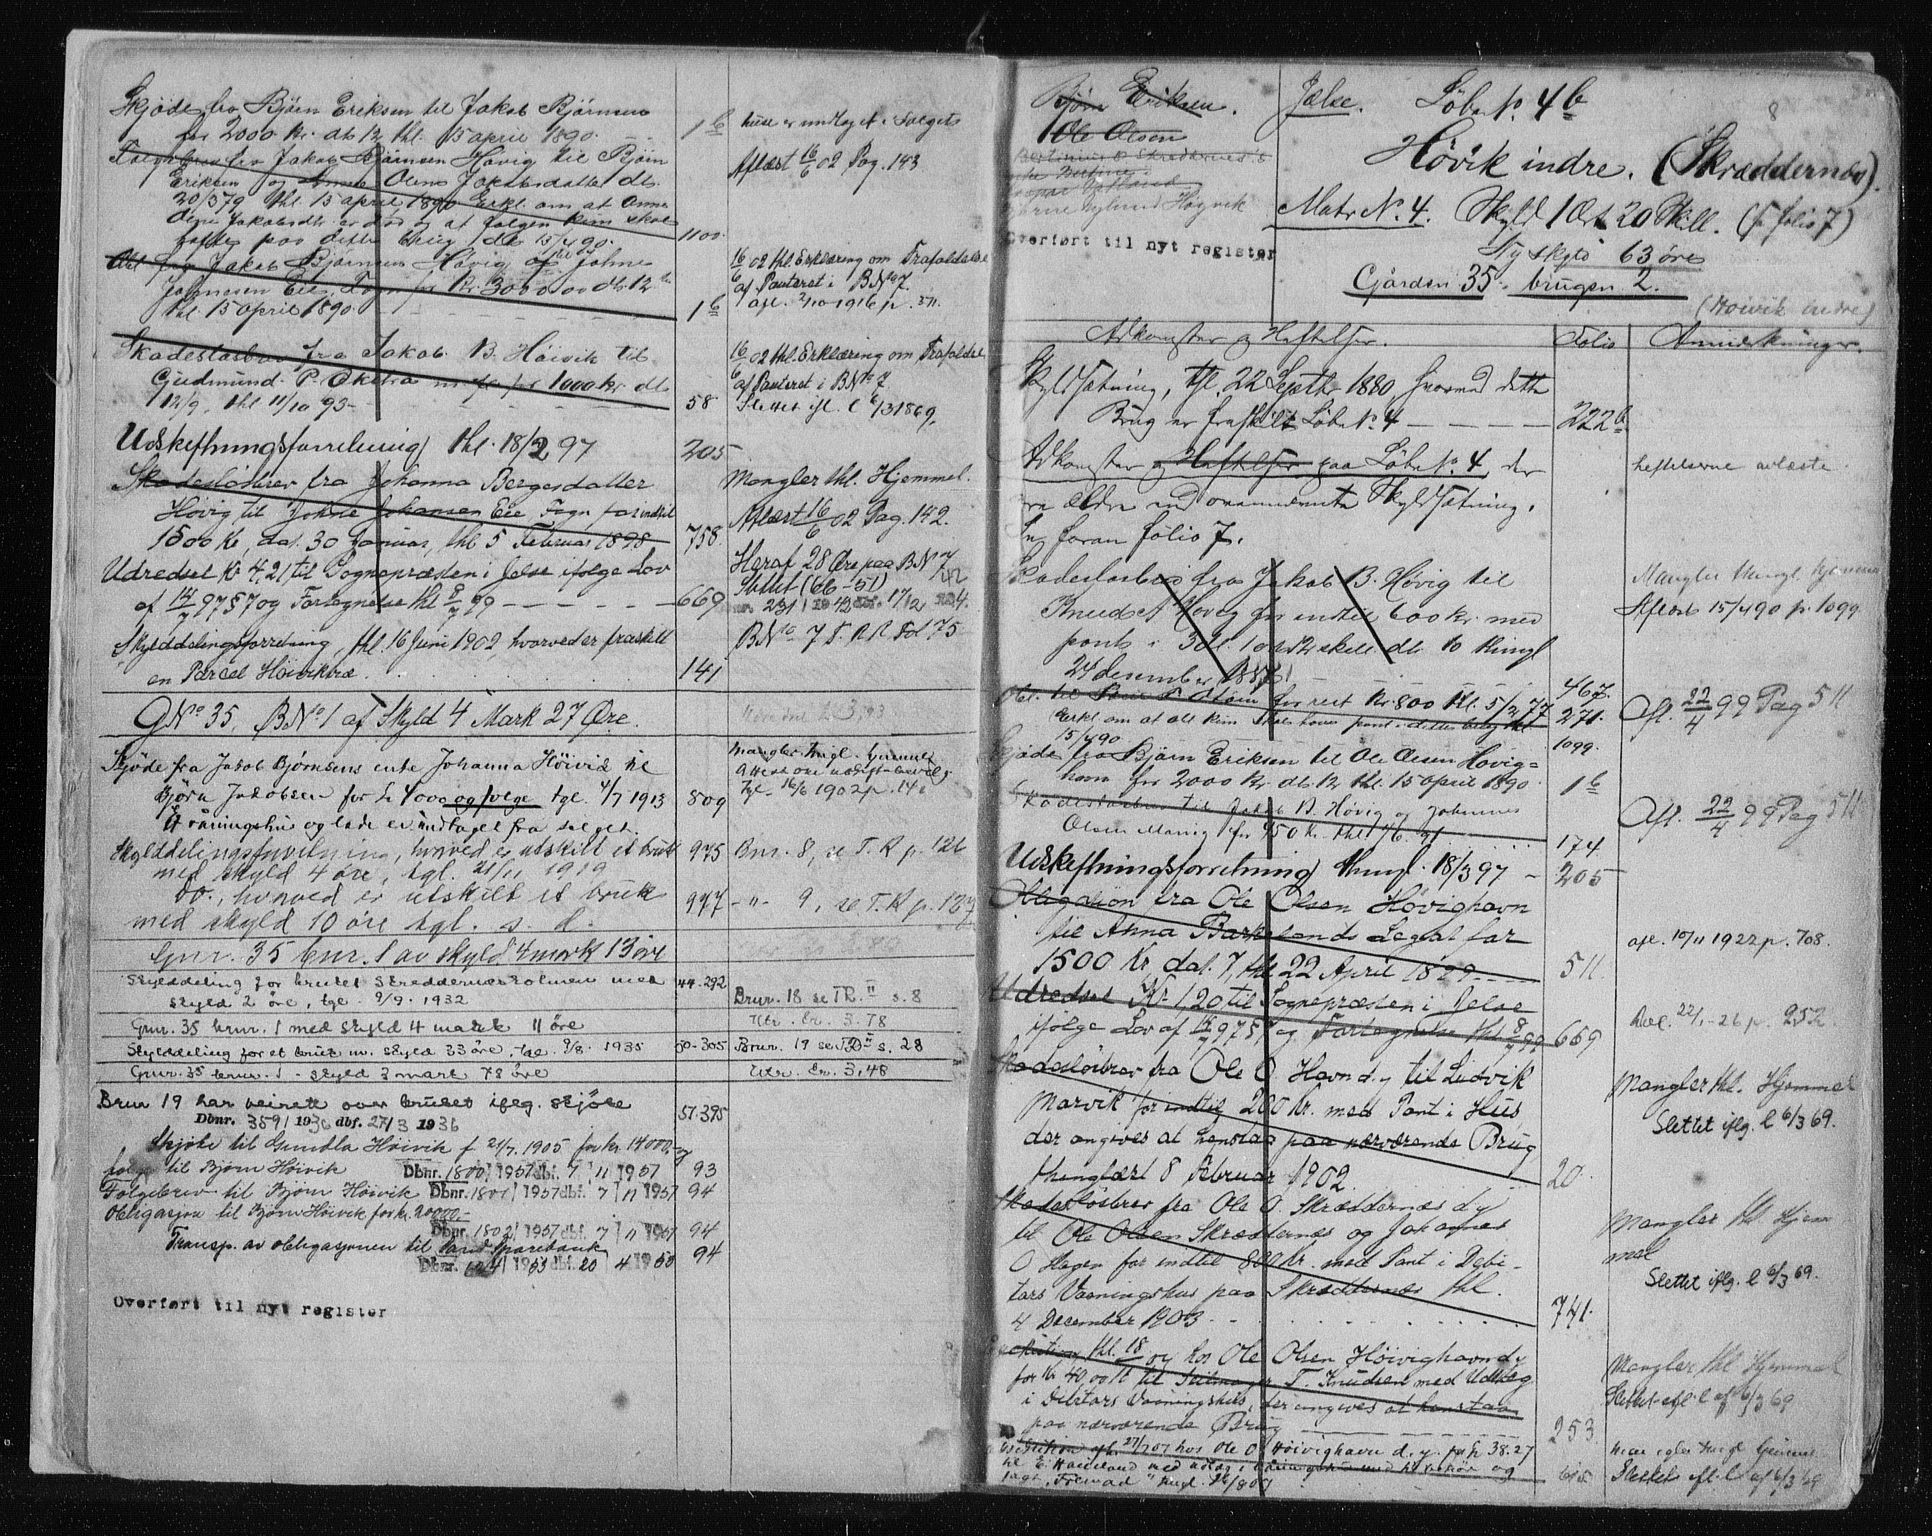 Skjøde fra Bjørn Eriksen til Jakob Bjørnsen
for 2000 Kr. dt. 12 thl. 15 april 1890. 1 b huse er undtaget i Salget
Følgebrev fra Jakob Bjørnsen Høvig til Bjørn
Eriksen og Anna Olene Jakobsdatter dt. Aflæst 16/6 02 Pag. 143
20/3 79 thl. 15 april 1890 Erkl. om at Anna
Olene Jakobsdt. er død og at følgen kun skal
hæftes paa dette brug dt. 15/4 90. 1100.
Obl. fra Jakob Bjørnsen Høvig til Johne 16/6 02 thl. Erklæring om Frafaldelse
Johnesen Eies Fogn for Kr. 3000.00 dt. 12 af Panteret i BNo 7.
thl. 15 april 1890. 1 b afl. 2/10 1916 p. 311.
Skadesløsbrev fra Jakob B. Høivik til 16/6 02 thl. Erklæring om Frafaldelse
Gudmund P. Økstra for 1000 Kr. dt. af Panteret i BNo 7.
12/9, thl. 11/10 93 58 Slettet ifl. l 6/3 1869.
Udskiftningsforretning thl. 18/2 97 205
Skadesløsbrev fra Johanna Bergesdatter Mangler thl. Hjemmel.
Høvig til Johne Johansen Eie Fogn for indtil Aflæst 16/6 02 Pag. 142.
1500 Kr, dat. 30 Januar, thl. 5 Februar 1898 758.
Udredsel Kr 4,21 til Sognepræsten i Jelse ifølge Lov Heraf 28 Øre paa BNo 7
af 14/7 97 § 7 og Fortegnelse thl. 8/7 99 669 Slettet (66-51)
Skylddelingsforretning, thl. 16 Juni 1902, hvorved er fraskilt BNo 7 F. RR Fol 75
en Parcel Høivikvræ. 141
GNo 35. BNo 1 af Skyld 4 Mark 27 Øre.
Skjøde fra Jakob Bjørnsens enke Johanna Høivik til
Bjørn Jakobsen for kr 4000 og følge tgl. 4/7 1913 809 tgl. 16/6 1902 p. 140
Et våningshus og lade er undtaget fra salget.
Skylddelingsforretning, hvorved er utskilt et bruk 975 Bnr. 8, se T.R. p. 126
med skyld 4 øre, tgl. 21/11 1919
Do., hvorved er utskilt et bruk 977 -"- 9, se T.R. p. 127
med skyld 10 øre tgl. s. d.
Gnr. 35 bnr. 1 av skyld 4 mark 13 øre
Skylddeling for bruket Skreddernesholmen med 44-292 Bruv. 18 se TR. II s. 8
skyld 2 øre, tgl. 9/9. 1932
Gnr. 35 bnr. 1 med skyld 4 mark 11 øre Utr. kr. 3.78
Skylddeling for et bruk m. skyld 33 øre, tgl. 9/8. 1935 50-305 Bruv. 19 se TR II s. 28
Gnr. 35 bnr. 1 - skyld 3 mark 78 øre Utr. kr. 3,48
Bruv 19 har veirett over bruket iflg. skjøte 51-395
Dbnr. 359 | 1936 dbf. 27/3 1936
Skjøte til Gundla Høivik f. 21/7. 1905 for kr 14000. og
følge til Bjørn Høivik Dbnr. 1800 | 1957 dbf. 7 | 11 1957 93
Følgebrev til Bjørn Høivik Dbnr. 1801 | 1957 dbf. 7 | 11 1957 94
Obligasjon til Bjørn Høivik for kr. 20000,-
Dbnr. 1802 | 1957 dbf. 7 | 11 1957 94
Transp. av obligasjonen til Sand Sparebank
dbf. 20 | 4 94
Overført til nyt register
Bjørn Eriksen. Jelse. Løbe No. 4b 8
Ole Olsen
Høivik indre. (Skræddernes).
Bjarne Nylund Høyvik
Matr No. 4. Skyld 1 Ort 20 Skill. (fr. folio 7)
Overført til nyt register
Ny skyld 63 øre
Gården 35 - brugen 2.
(Høivik indre)
Adkomster og Heftelser. Folio Anmerkninger.
Skyldsætning, thl. 22 Septbr 1880 hvorved dette
Brug er fraskilt Løbe No. 4 222 b
Adkomster og Heftelser paa Løbe No. 4, der heftelserne avlæste
ere ældre end ovannævnte Skyldsætning.
Se foran folio 7.
Skadesløsbrev fra Jakob B. Høvig til
Knud A Høvig for indtil 600 Kr. med Aflæst 15/4 90 p. 1099
pant i
24 desember 1876 467.
Obl. til for rest Kr. 800 thl. 5/2 77 271. Afl. 22/4 99 Pag 511
15/4 90 1099.
Skjøde fra Bjørn Eriksen til Ole Olsen Høvig-
havn for 2000 Kr. dt. 12 thl. 15 april 1890. 1 b
Skadesløsbrev til Jakob B. Høvig og Johannes Afl. 22/4 99 Pag 511
Olsen for 450 Kr. 174.
Udskiftningsforretning thingl. 18/3 97 - 205
Obligation fra Ole Olsen Høvighavn
til Anna Barkelands Legat for afl. 10/11 1922 p. 708.
1500 Kr. dat. 7, thl. 22 April 1899 511
Udredsel Kr. 1 20 til Sognepræsten i Jelse
ifølge Lov af 14/7 97 § 7 og Fortegnelse thl. 8/7 99 669 22/1-26 p. 252
Skadesløsbrev fra Ole O. Havn d.y. til Ludvik Mangler thl. Hjemmel
Narvik for indtil 200 Kr. med Pant i Hus Slettet iflg. l 6/3 69.
der angives at henstaa paa nærværende Brug,
thinglæst 8 Februar 1902. 20.
Skadesløsbrev fra Ole O. Skræddernes d.y
til Ole Olsen Skræddernes og Johannes Mangler thl. Hjem
O Hagen for indtil 800 Kr. med Pant i Debi- mel
tors Vaaningshus paa Skræddernes thl. Slettet iflg. l 6/3 69.
4 December 1903. 741.
thl. 18 hos Ole Olsen Høivighavn d.y. Mangler thl. Hjemmel
for Kr 40,00 til Seilmager T. Knudsen med Udlæg Slettet ifl. l af 6/3 69
i Debitors Vaaningshus, der angives at henstaa
paa nærværende Brug 253
27/7 07 hos Ole O. Høivighavn d.y. for kr 38.27
til E. Haueland med udlæg i 615 Slettet ifl. l af 6/3 69